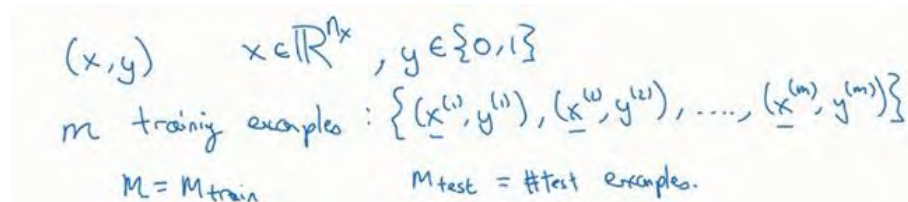 (x,y) x∈ℝ^{n_x}, y∈{0,1}
m trainiy examples : {(x^{(1)}, y^{(1)}), (x^{(2)}, y^{(2)}), ...., (x^{(m)}, y^{(m)})}
M = M_{train} M_{test} = #test examples.